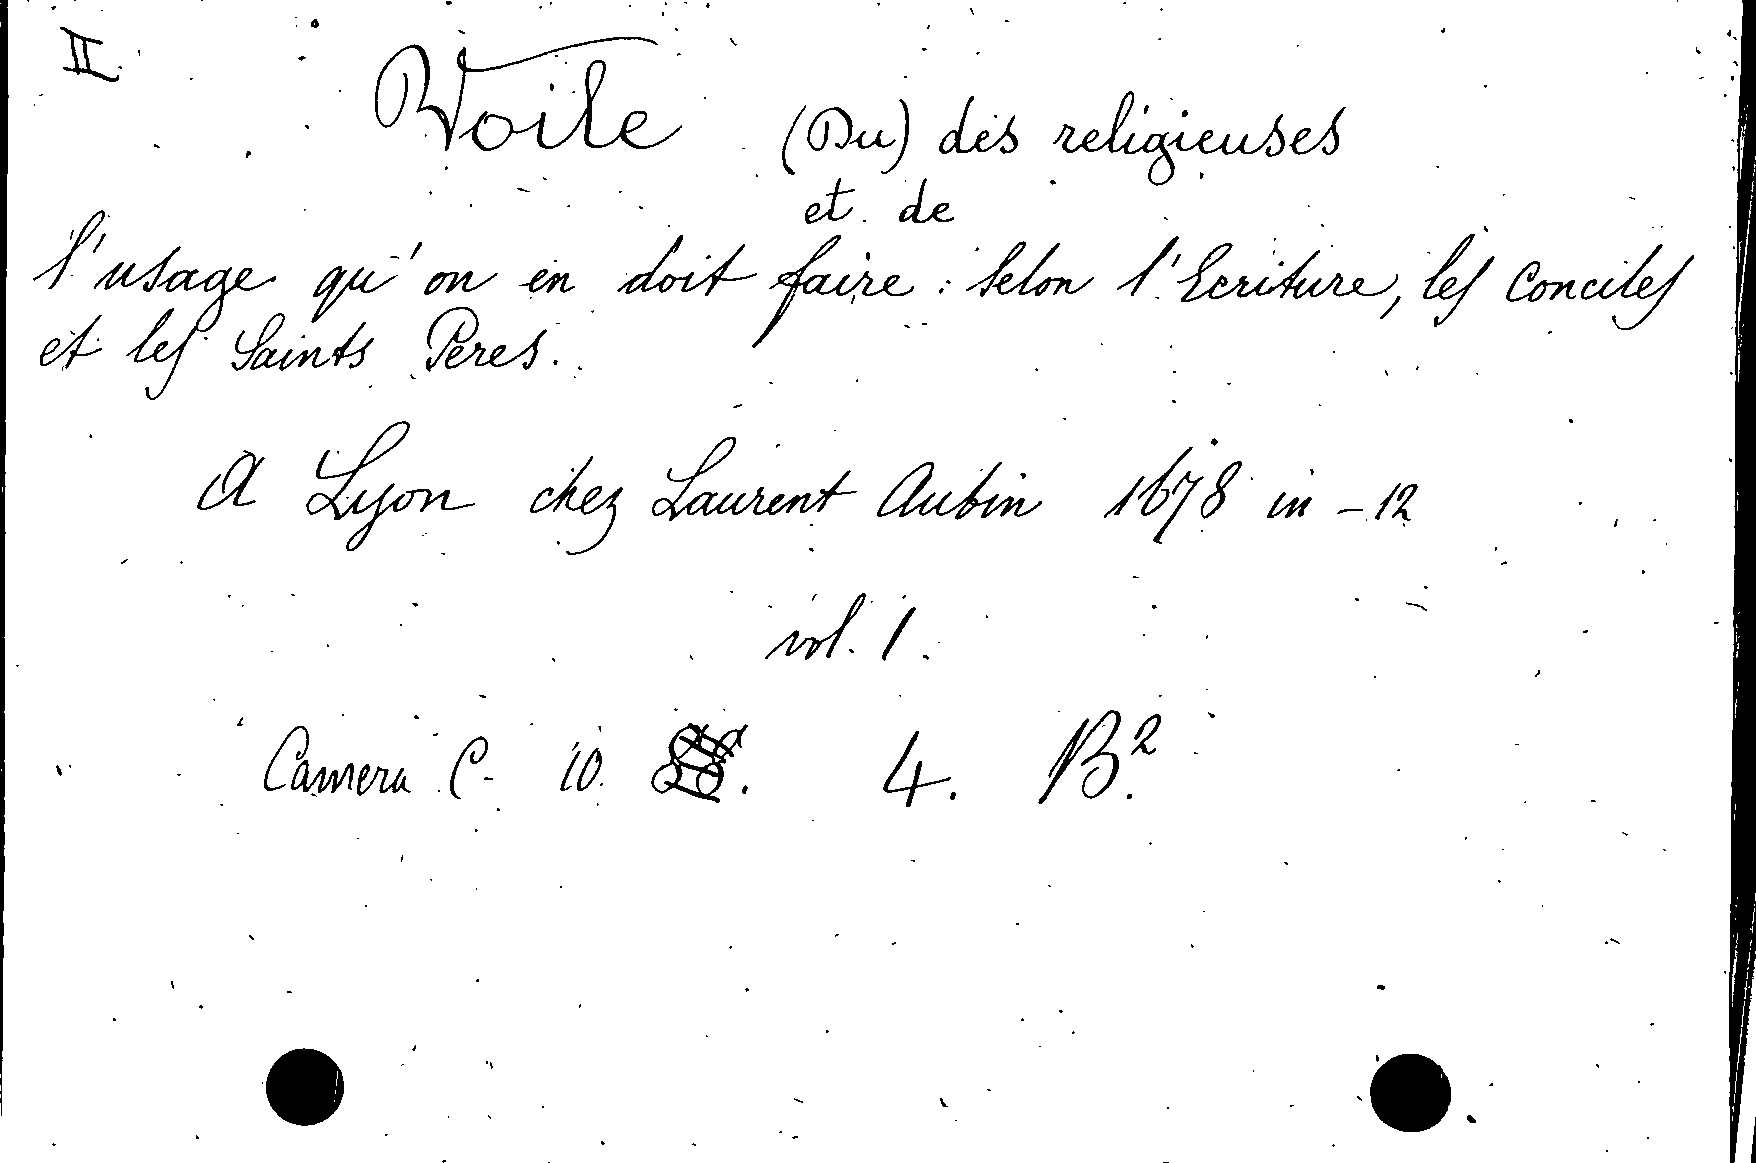 II
Voile (Du) des religieuses
et de
l'usage qu'on en doit faire : selon l'Ecriture, les Conciles
et les Saints Peres.
A Lyon chez Laurent Aubin 1678 in - 12
vol. 1.
Camera C. 10. 4. B².